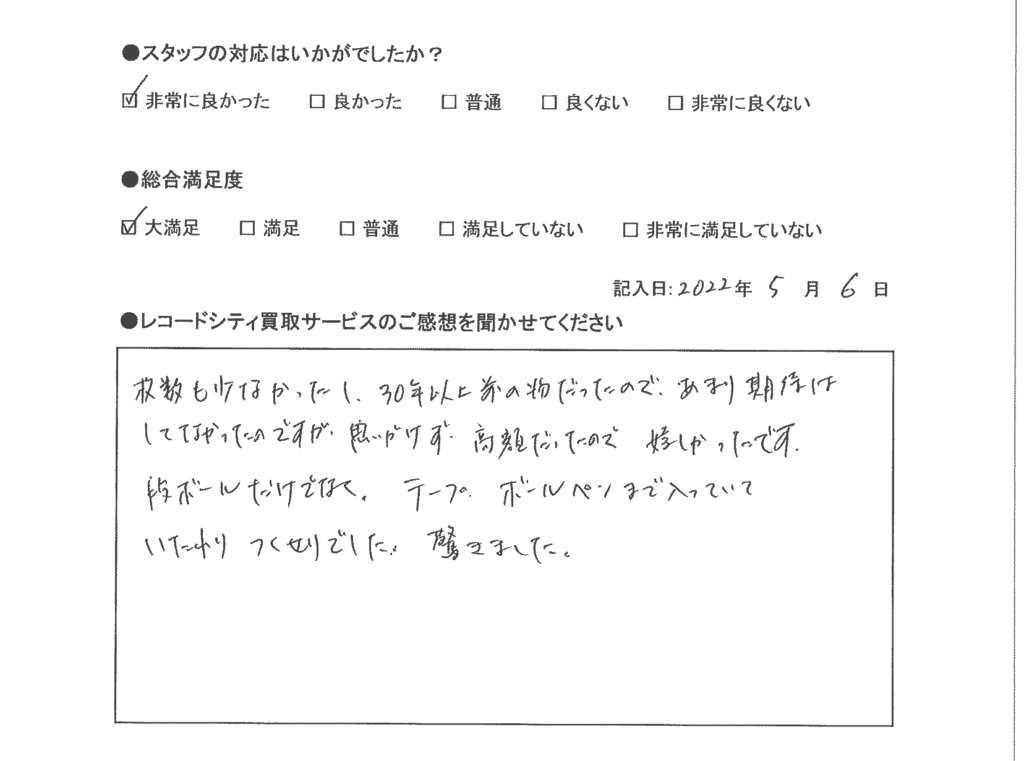 ●スタッフの対応はいかがでしたか？
☑ 非常に良かった □ 良かった □ 普通 □ 良くない □ 非常に良くない
●総合満足度
☑ 大満足 □ 満足 □ 普通 □ 満足していない □ 非常に満足していない
記入日:2022年 5 月 6 日
●レコードシティ買取サービスのご感想を聞かせてください
枚数も少なかったし、30年以上前の物だったので、あまり期待は
してなかったのですが、思いがけず、高額だったので 嬉しかったです。
段ボールだけでなく、テープ、ボールペンまで入っていて
いたれり つくせりでした。驚きました。